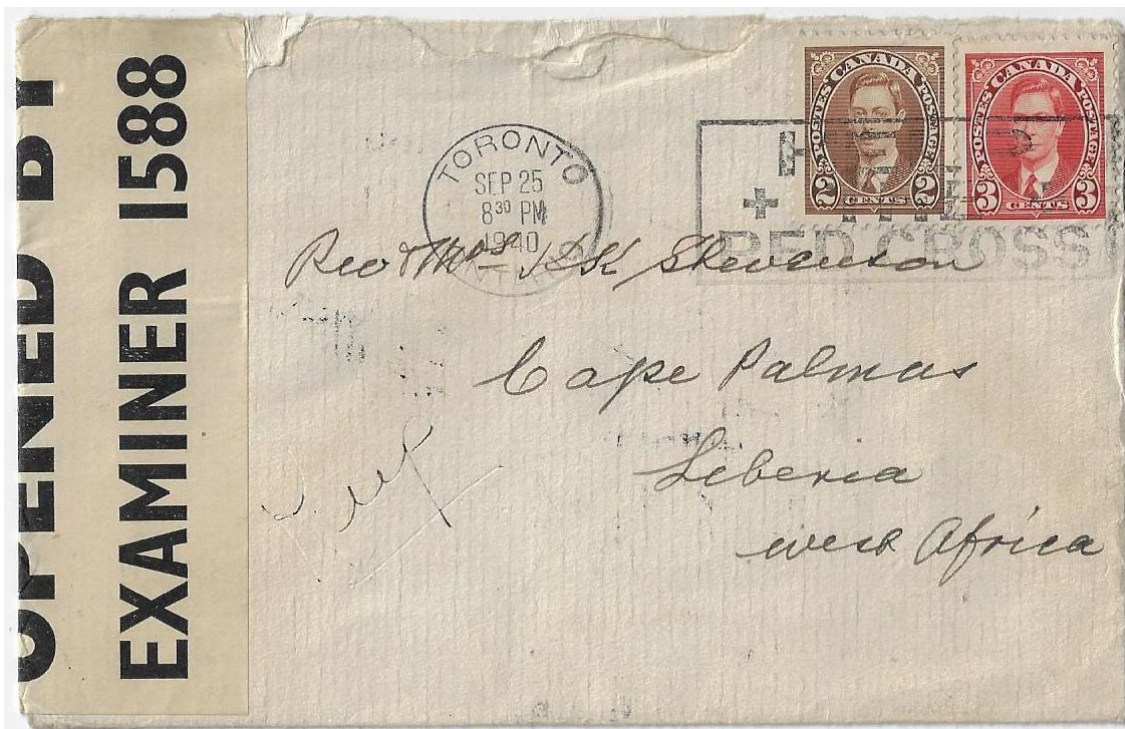 OPENED BY
EXAMINER 1588
TORONTO
SEP 25
8 30 PM
1940
POSTES CANADA POSTAGE
2 2
CENTS
POSTES CANADA POSTAGE
3 3
CENTS
THE
RED CROSS
Rev & Mrs Stevenson
Cape Palmas
Liberia
West Africa